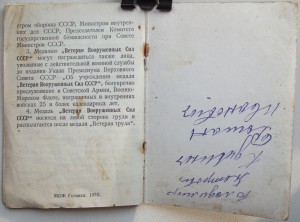 стром обороны СССР, Министром внутрен-
них дел СССР, Председателем Комитета
государственной безопасности при Совете
Министров СССР.
3. Медалью „Ветеран Вооруженных Сил
СССР" могут награждаться также лица,
уволенные с действительной военной службы
до издания Указа Президиума Верховного
Совета СССР "Об учреждении медали
„Ветеран Вооруженных Сил СССР", безупреч-
но прослужившие в Советской Армии, Военно-
Морском Флоте, пограничных и внутренних
войсках 25 и более календарных лет.
4. Медаль „Ветеран Вооруженных Сил
СССР" носится на левой стороне груди и
располагается после медали "Ветеран труда".
Владимир
Петрович
Иванович